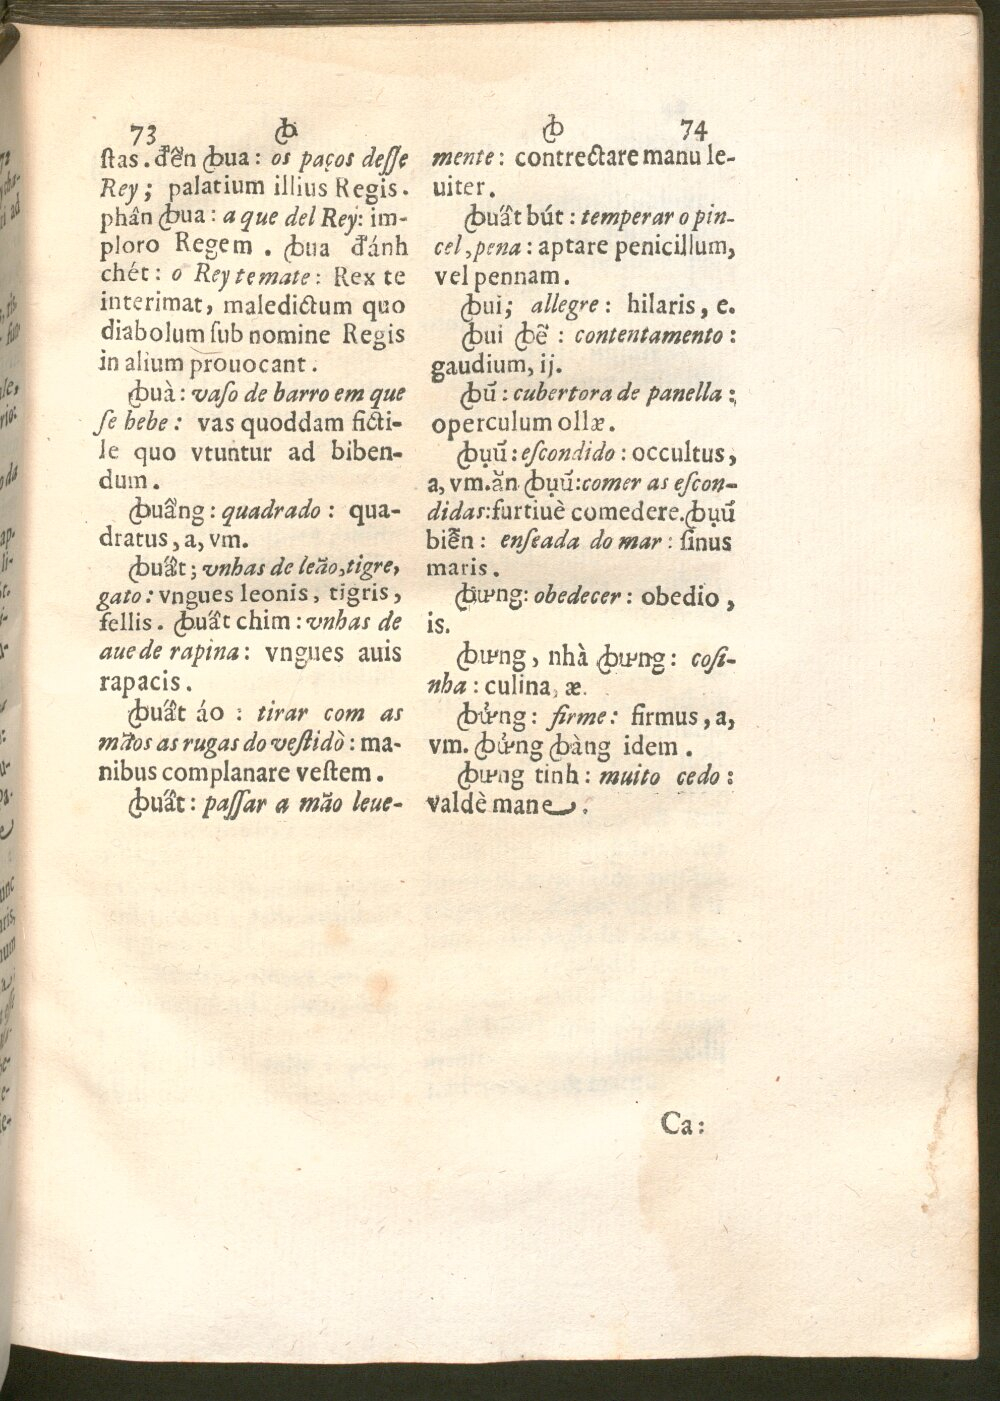 73 ꞗ
ſtas. đền ꞗua: os paços deſſe
Rey; palatium illius Regis.
phân ꞗua: a que del Rey: im-
ploro Regem. ꞗua đánh
chét: o Rey te mate: Rex te
interimat, maledictum quo
diabolum ſub nomine Regis
in alium prouocant.
ꞗuà: vaſo de barro em que
ſe bebe: vas quoddam ficti-
le quo vtuntur ad biben-
dum.
ꞗuâng: quadrado: qua-
dratus, a, vm.
ꞗuất; vnhas de leão, tigre,
gato: vngues leonis, tigris,
fellis. ꞗuất chim: vnhas de
aue de rapina: vngues auis
rapacis.
ꞗuất áo: tirar com as
mãos as rugas do veſtidò: ma-
nibus complanare veſtem.
ꞗuất: paſſar a mão leue-
ꞗ 74
mente: contrectare manu le-
uiter.
ꞗuất bút: temperar o pin-
cel, pena: aptare penicillum,
vel pennam.
ꞗui; allegre: hilaris, e.
ꞗui ꞗẽ: contentamento:
gaudium, ij.
ꞗũ: cubertora de panella:
operculum ollæ.
ꞗụũ: eſcondido: occultus,
a, vm. ăn ꞗụũ: comer as eſcon-
didas: furtiuè comedere. ꞗụũ
biển: enſeada do mar: ſinus
maris.
ꞗưng: obedecer: obedio,
is.
ꞗưng, nhà ꞗưng: coſi-
nha: culina, æ.
ꞗửng: firme: firmus, a,
vm. ꞗửng ꞗàng idem.
ꞗưng tinh: muito cedo:
valdè mane.
Ca: